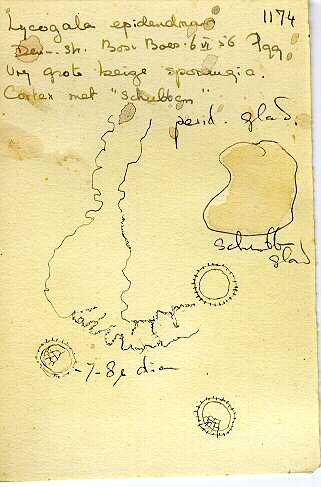 Lycogala epidendrum
1174
str. Bosw Boes. 6 VI 56
Vrij grote beige sporangia.
Cortex met "Schubben"
perid. glad.
schubb
glad
-7-8µ diam